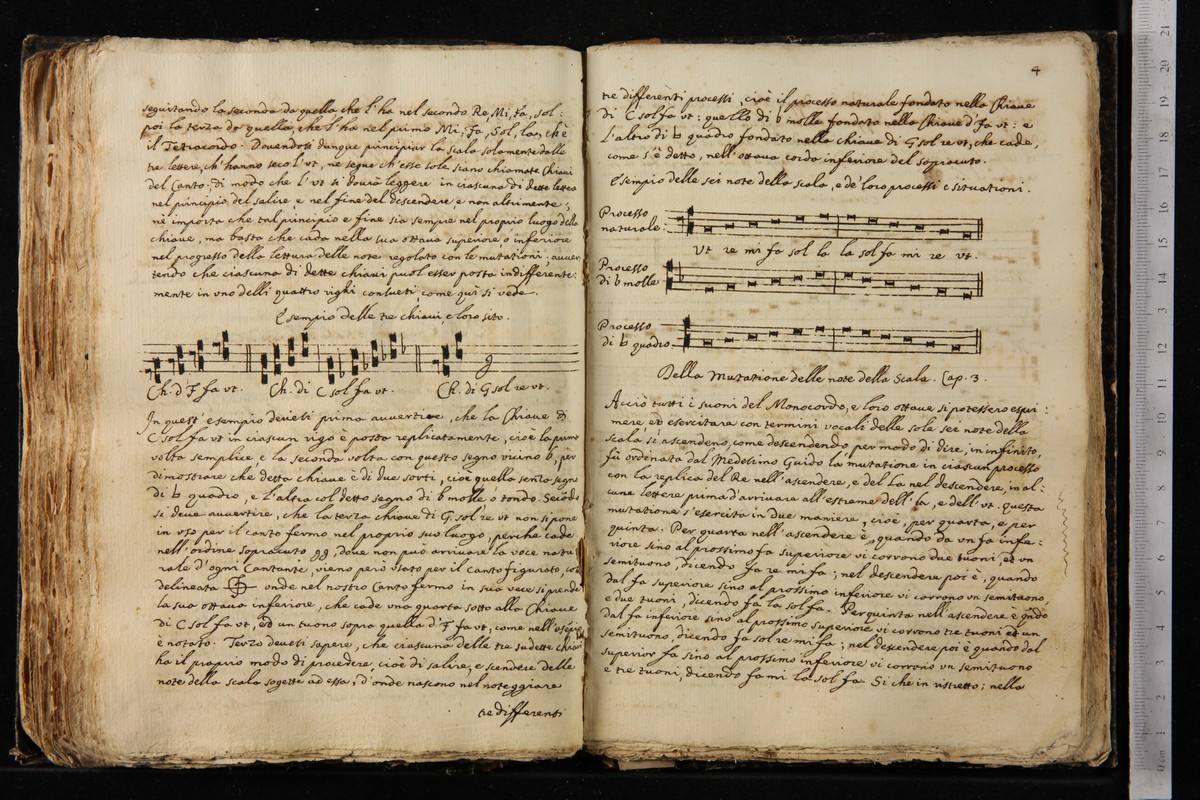 seguitando la seconda da quella che l'ha nel secondo Re, Mi, Fa, Sol:
poi la terza da quella, che l'ha nel primo Mi, Fa, Sol, la, ch'è
il Tetracordo. Dovendosi dunque principiar la scala solamente dalle
tre lettere, ch'hanno seco l'vt, ne segue ch'esse sole siano chiamate Chiavi
del Canto: di modo che l'vt si dovrà leggere in ciascuna di dette lettere
nel principio del salire, e nel fine del descendere, e non altrimente;
nè importa che tal principio e fine sia sempre nel proprio luogo della
chiave, ma basta che cada nella sua ottava superiore ò inferiore
nel progresso della lettura delle note regolato con le mutationi, auuer
tendo che ciascuna di dette chiavi puol esser posta indifferente:
mente in vno delli quattro righi consueti, come quì si vede.
Esempio delle tre chiavi, e loro sito.
Ch. d F fa vt. Ch. di C sol fa vt. Ch. di G sol re vt.
In quest'esempio devesi prima auuertire, che la Chiave di
C sol fa vt in ciascun rigo è posta replicatamente, cioè la prima
volta semplice e la seconda volta con questo segno vicino b, per
dimostrare che detta chiave è di due sorti, cioè quella senza segno
di ♮ quadro, e l'altra col detto segno di b molle ò tondo. Secondo
si deve auuertire, che la terza chiave di G sol re vt non si pone
in vso per il canto fermo nel proprio suo luogo, perche cade
nell'ordine sopracuto gg, dove non può arrivare la voce natu
rale d'ogni Cantante, vieno però vsato per il canto figurato, così
delineata onde nel nostro Canto fermo in sua vece si prende
la sua ottava inferiore, che cade vna quarta sotto alla Chiave
di C sol fa vt, ed un tuono sopra quella d'F fa vt, come nell'esempio
è notato. Terzo devesi sapere, che ciascuna delle tre sudette chiavi
ha il proprio modo di procedere, cioè di salire, e scendere delle
note della scala sogette ad essa, d'onde nascono nel noteggiare
tre differenti
4
tre differenti processi, cioè il processo naturale fondato nella Chiave
di C sol fa vt: quello di b molle fondato nella Chiave d'F fa vt: e
l'altro di ♮ quadro fondato nella chiave di G sol re vt, che cade,
come s'è detto, nell'ottava corda inferiore del sopracuto.
Esempio delle sei note della scala, e de' loro processi e situationi.
Processo
naturale
Vt re mi fa sol la la sol fa mi re vt.
Processo
di b molle
Processo
di ♮ quadro
Della Mutatione delle note della Scala. Cap. 3.
Acciò tutti i suoni del Monocordo, e loro ottave si potessero espri:
mere, ed esercitare con termini vocali delle sole sei note della
scala sì ascendeno, come descendendo, per modo di dire, in infinito,
fù ordenata dal Medesimo Guido la mutatione in ciascun processo
con la replica del Re nell'ascendere, e del La nel descendere, in al:
cune lettere prima d'arrivare all'estreme dell' la, e dell'vt. questa
mutatione s'esercita in due maniere, cioè, per quarta, e per
quinta. Per quarta nell'ascendere è, quando da vn fa infe:
riore sino al prossimo fa superiore vi corrono due tuoni, ed vn
semituono, dicendo fa re mi fa; nel descendere poi è, quando
dal fa superiore sino al prossimo inferiore vi corrono vn semituono
e due tuoni, dicendo fa la sol fa. Per quinta nell'ascendere è qndo
dal fa inferiore sino al prossimo superiore vi corrono tre tuoni ed un
semituono, dicendo fa sol re mi fa; nel descendere poi è quando dal
superior fa sino al prossimo inferiore vi corrono vn semituono
e tre tuoni, dicendo fa mi la sol fa. Si che in ristretto; nella